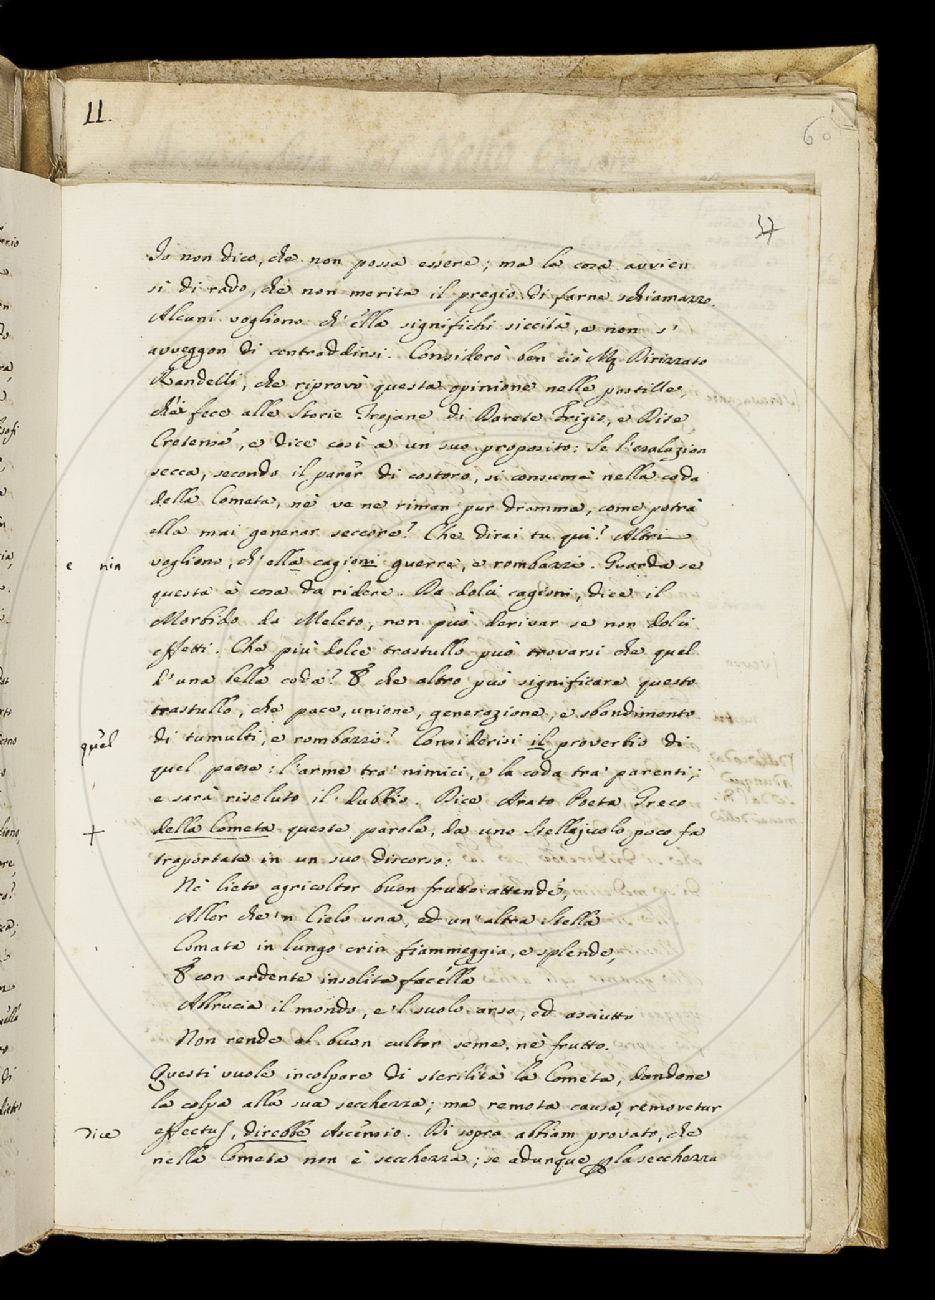 11.
60
37
Io non dico, che non possa essere; ma la cosa avvien
si di rado, che non merita il pregio di farne schiamazzo.
Alcuni vogliono ch'ella significhi siccità, e non s'
avveggon di contraddirsi. Considerò ben ciò Birizzato
Randelli, che riprovò questa opinione nelle postille,
ch'ei fece alle Storie Trojane di Darete Frigio, e Dite
Cretense, e dice così a un suo proposito: Se l'esalazion
secca, secondo il parer di costoro, si consuma nella coda
della Cometa, nè ve ne riman pur dramma, come potrà
ella mai generar seccore? Che dirai tu quì? Altri
e nin vogliono, ch'ella cagioni guerre, e rombazzi. Guarda se
questa è cosa da ridere. Da dolci cagioni, dice il
Morbido da Meleto, non può derivar se non dolci
effetti. Che più dolce trastullo può trovarsi che quel
d'una bella coda? E che altro può significare questo
trastullo, che pace, unione, generazione, e sbandimento
quel di tumulti, e rombazzi? Considerisi il proverbio di
quel paese: l'arme tra' nimici, e la coda tra' parenti;
e sarà risoluto il dubbio. Dice Arato Poeta Greco
+ della Cometa queste parole, da uno poco fa
traportate in un suo discorso:
Nè lieto agricoltor buon frutto attende,
Allor che 'n Cielo una, ed un'altra Stella
Comata in lungo crin fiammeggia, e splende,
E con ardente insolita facella
Abbrucia il mondo, e 'l suolo arso, ed asciutto
Non rende al buon cultor seme, nè frutto.
Questi vuole incolpare di sterilità la Cometa, dandone
la colpa alla sua secchezza; ma remota causa, removetur
dice effectus, direbbe Ascensio. Di sopra abbiam provato, che
nella Cometa non è secchezza; se adunque p la secchezza